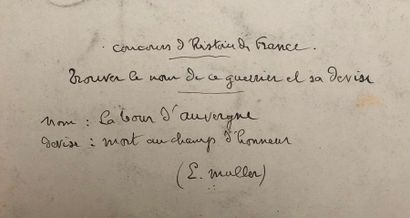 concours d'Histoire de France.
Trouver le nom de ce guerrier et sa devise
nom : La tour d'auvergne
devise : mort au champ d'honneur
(E. Muller)